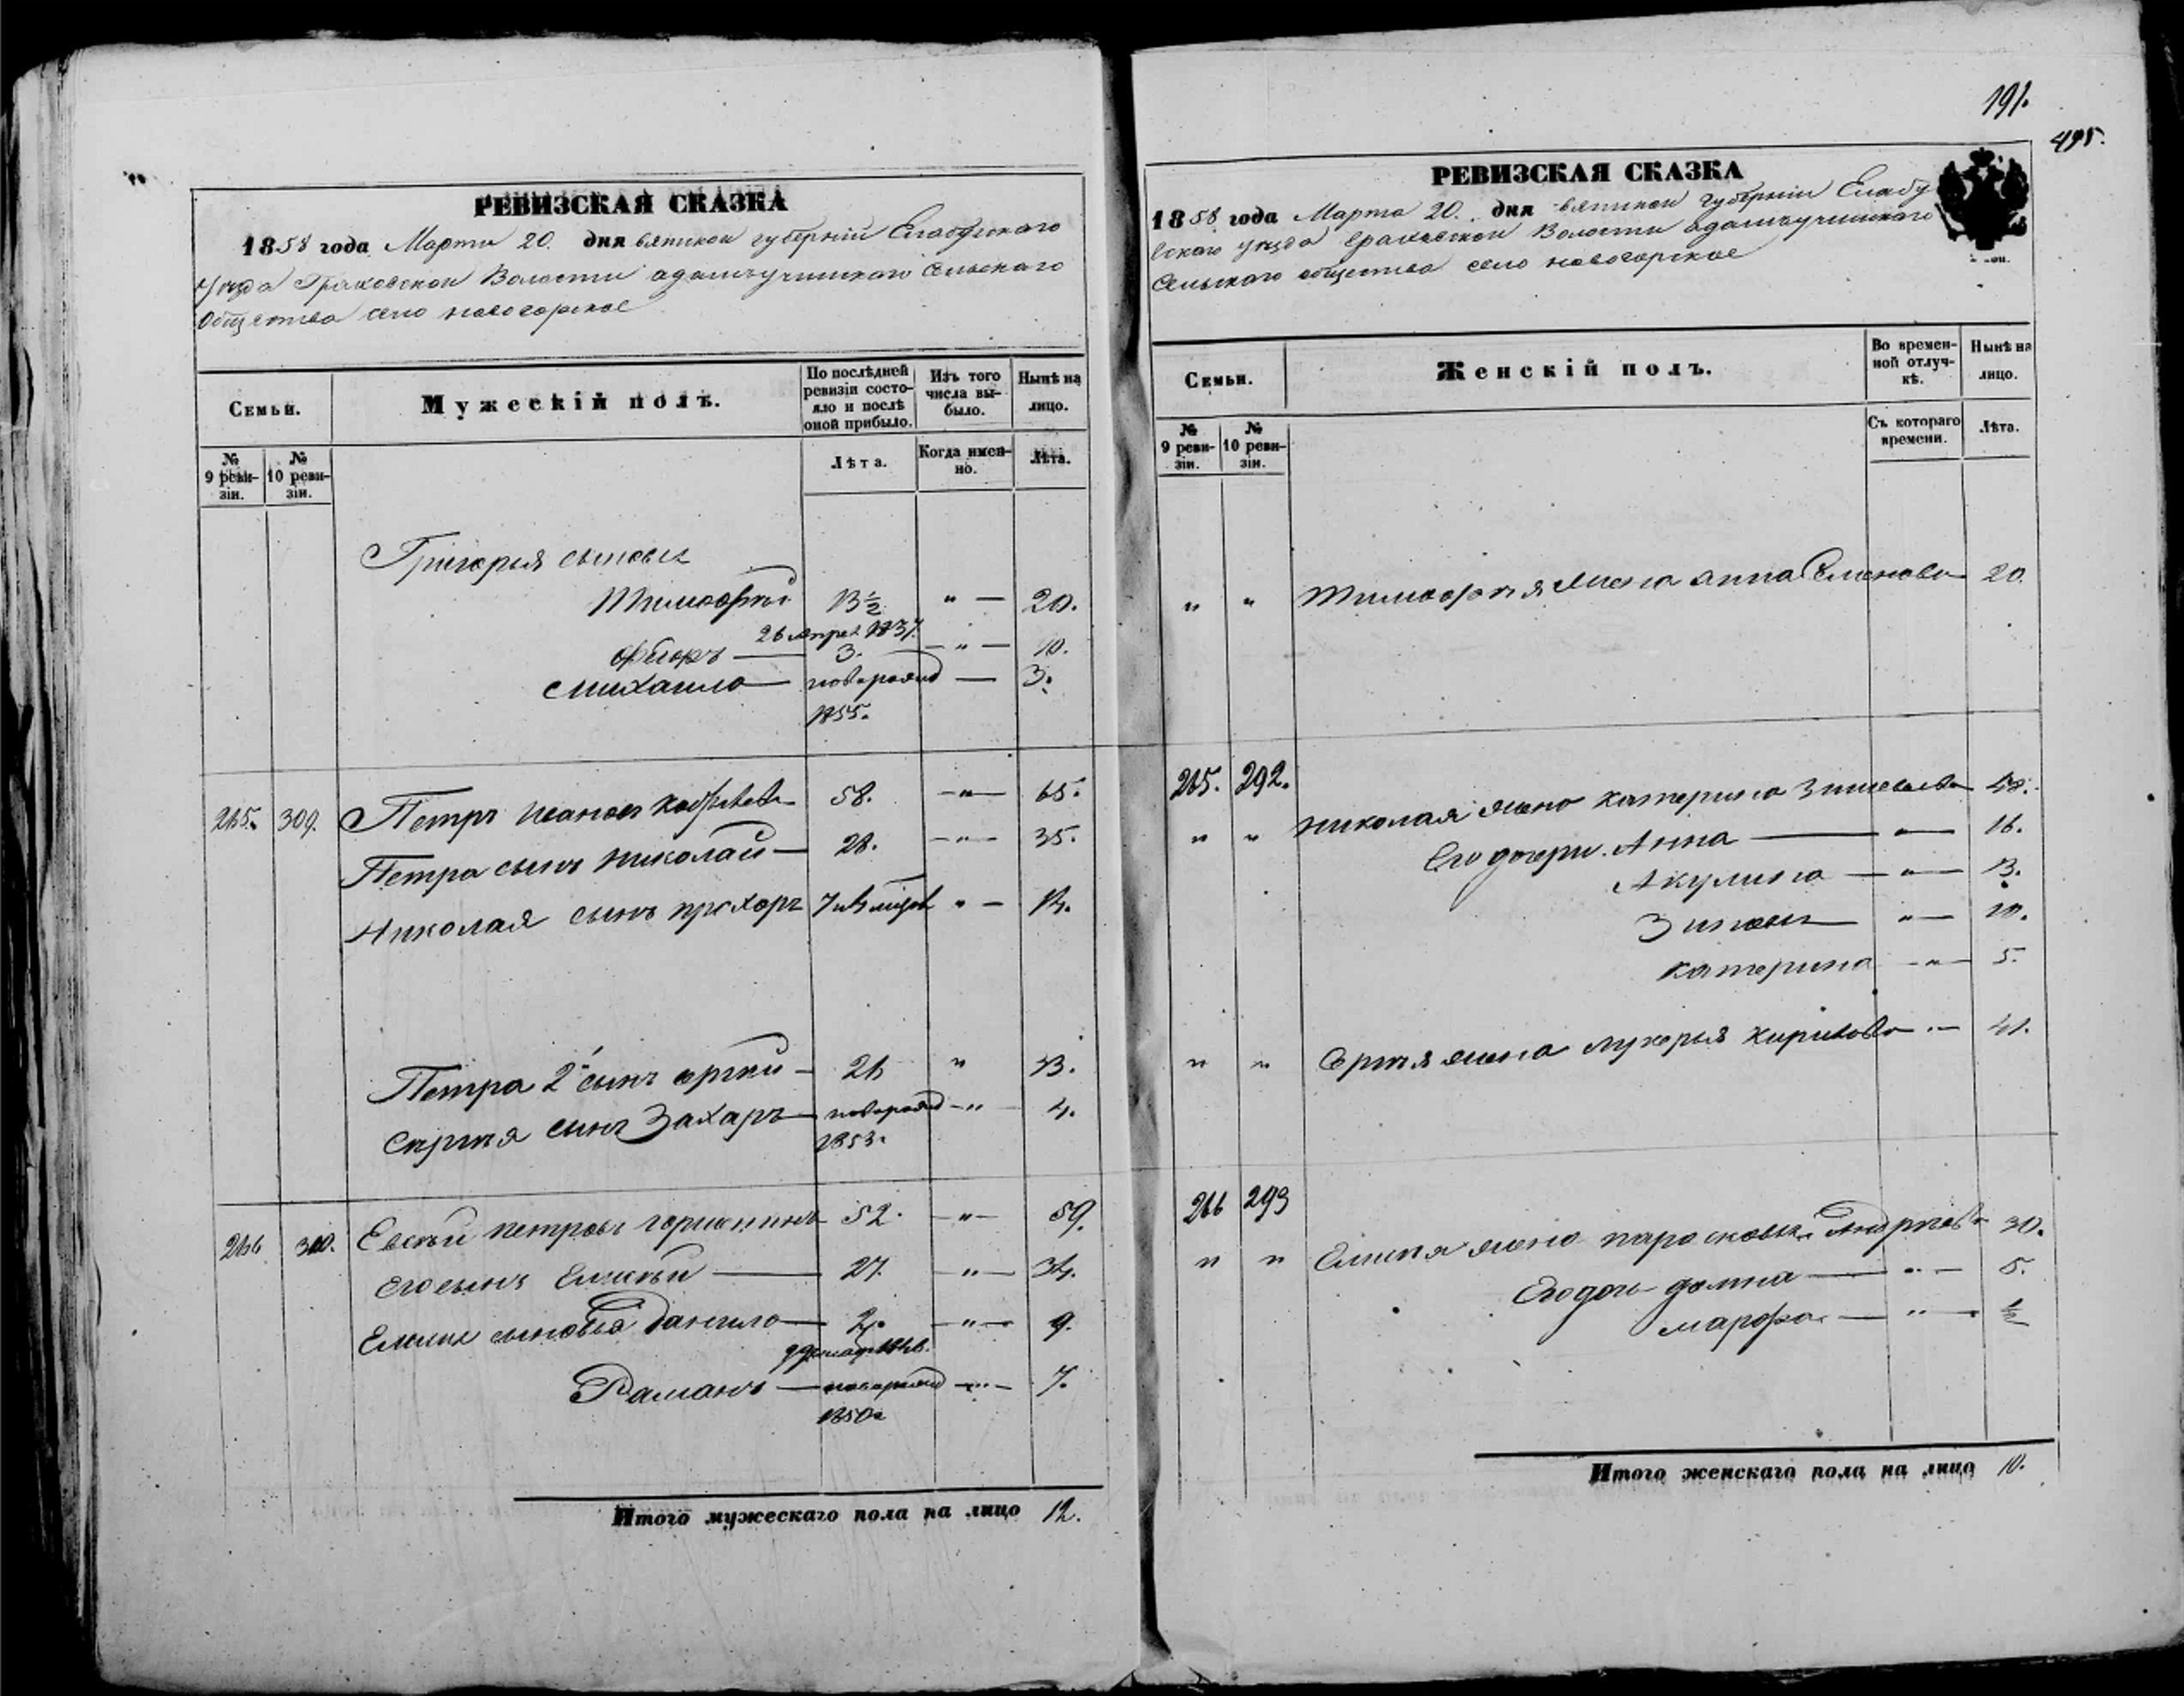 191.
495.
РЕВИЗСКАЯ СКАЗКА
1858 года Марта 20. дня вятской губерніи Елабужскаго
уезда Граховской Волости Сельскаго
Общества село новогорское
Семьи.
Мужескій полъ.
По послѣдней ревизіи состояло и послѣ оной прибыло.
Изъ того числа выбыло.
Нынѣ на лицо.
№ 9 ревизіи.
№ 10 ревизіи.
Лѣта.
Когда именно.
Лѣта.
Григорья сыновья
Тимофей 13½ " — 20.
26 1837.
3. — " — 10.
михаило — новорожд — 3.
1855.
265. 309. Петръ Иванов 58. — " — 65.
Петра сынъ николай — 28. — " — 35.
Николая сынъ прохоръ 7 " —
Петра 2й сынъ сергей — 26 "
Сергея сынъ Захаръ — новорожд — " — 4.
1853.
266 310. Евсей петровъ 52. — " — 59.
его сынъ Елисей — 27. — " — 34.
Елисея сыновья Данило — 2. — " — 9.
Романъ — новорожд — " — 7.
1850
Итого мужескаго пола на лицо 12.
РЕВИЗСКАЯ СКАЗКА
1858 года Марта 20. дня вятской губерніи Елабу
жскаго уезда Граховской Волости
Сельскаго общества село новогорское
Семьи.
Женскій полъ.
Во временной отлучкѣ.
Нынѣ на лицо.
№ 9 ревизіи.
№ 10 ревизіи.
Съ котораго времени.
Лѣта.
" " Тимофея жена анна Семенова — 20.
265. 292.
" " николая жена катерина
Его дочери. Анна — " — 16.
Акулина — " — 13.
— " — 10.
катерина — " — 5.
" " Сергея жена лукерья — 41.
266 293
" " Елисея жена парасковья Андреева 30.
Его дочь домна — " — 5.
марфа — " — ½
Итого женскаго пола на лицо 10.